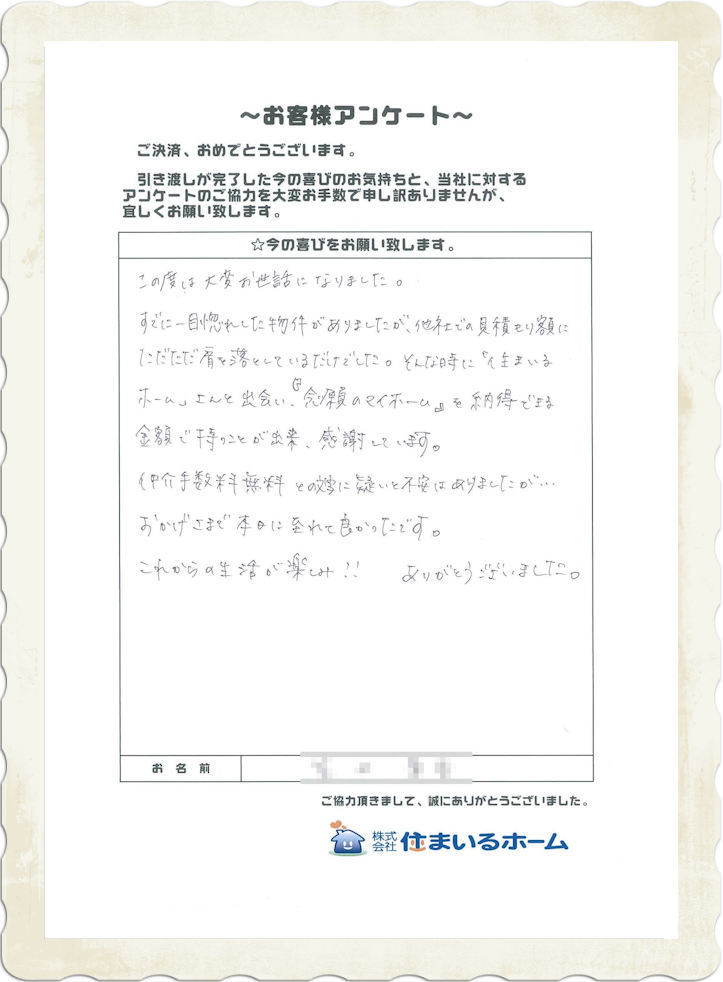 ～お客様アンケート～
ご決済、おめでとうございます。
引き渡しが完了した今の喜びのお気持ちと、当社に対する
アンケートのご協力を大変お手数で申し訳ありませんが、
宜しくお願い致します。
☆今の喜びをお願い致します。
この度は大変お世話になりました。
すでに一目惚れした物件がありましたが、他社での見積もり額に
ただただ肩を落としているだけでした。そんな時に「住まいる
ホーム」さんと出会い、『念願のマイホーム』を納得できる
金額で持つことが出来、感謝しています。
仲介手数料無料 との に疑いと不安はありましたが…
おかげさまで本日に至れて良かったです。
これからの生活が楽しみ!! ありがとうございました。
お名前
ご協力頂きまして、誠にありがとうございました。
株式会社 住まいるホーム